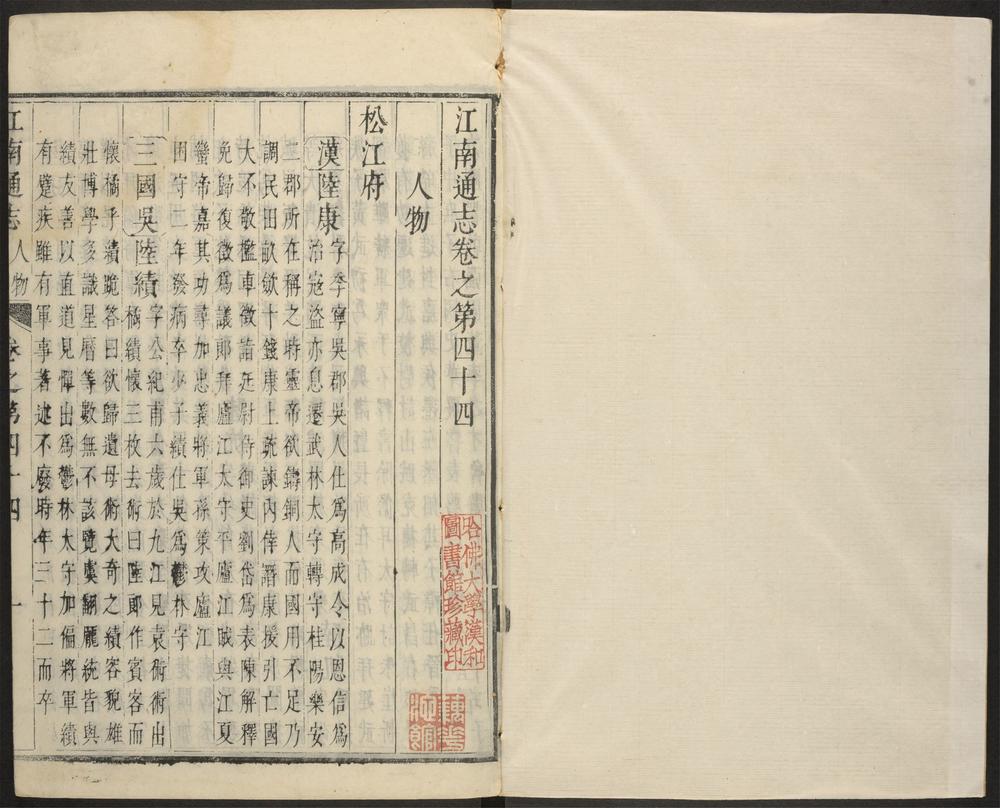 江南通志卷之第四十四
人物
松江府
漢陸康字季寧吳郡吳人仕爲高成令以恩信爲
治寇盜亦息遷武林太守轉守桂陽樂安
二郡所在稱之時靈帝欲鑄銅人而國用不足乃
調民田畝歛十錢康上䟽諫內倖譖康援引亡國
大不敬檻車徵詣廷尉侍御史劉岱爲表陳解釋
免歸復徵爲議郎拜廬江太守平廬江賊與江夏
蠻帝嘉其功尋加忠義將軍孫策攻廬江
固守二年發病卒少子績仕吳爲鬱林守
三國吳陸績字公紀甫六歲於九江見袁術術出
橘績懷三枚去術曰陸郎作賓客而
懷橘乎績跪答曰欲歸遺母術大奇之績容貌雄
壯博學多識星曆等數無不該覽虞翻龐統皆與
績友善以直道見憚出爲鬱林太守加偏將軍績
有躄疾雖有軍事著述不廢時年三十二而卒
江南通志 人物 卷之第四十四 一
哈佛大學漢和
圖書館珍藏印